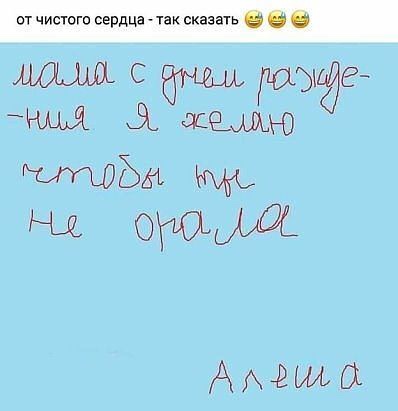 от чистого сердца - так сказать 😅😅😅
мама с днем ражде-
-ния я желаю
чтобы ты
не орала
Алеша